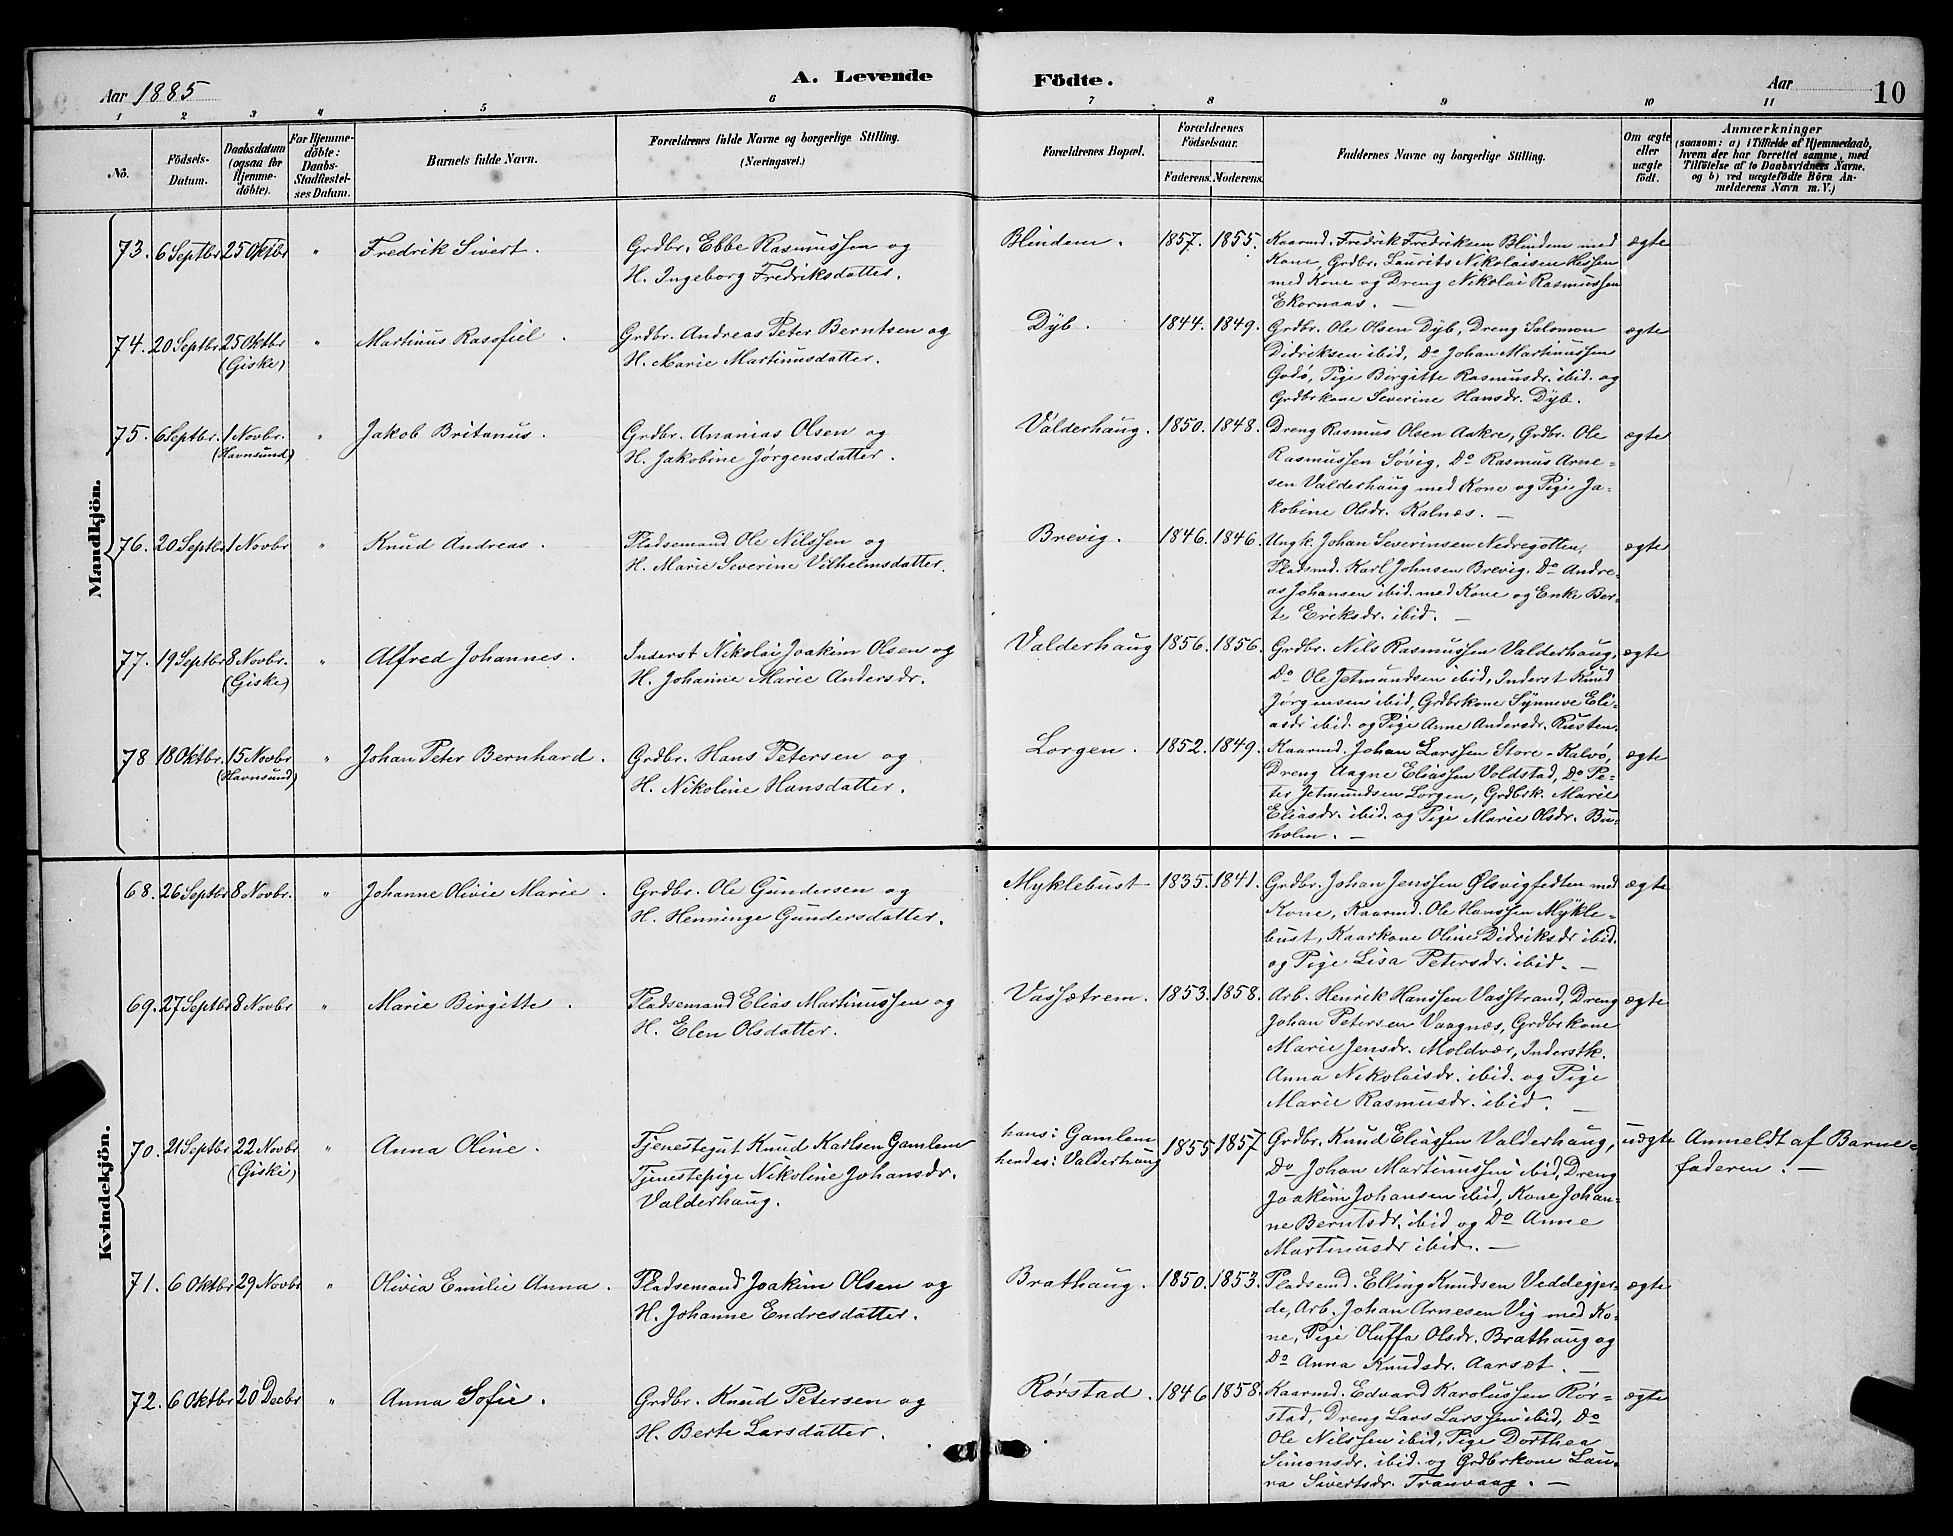 Aar 1885
A. Levende Födte.
Aar
10
1 2 3 4 5 6 7 8 9 10 11
No.
Födsels-
Datum.
Daabsdatum
(ogsaa for
Hjemme-
döbte).
For Hjemme-
döbte:
Daabs-
Stadfæstel-
ses Datum.
Barnets fulde Navn.
Forældrenes fulde Navne og borgerlige Stilling.
(Næringsvei.)
Forældrenes Bopæl.
Forældrenes
Födselsaar.
Faderens. Moderens.
Faddernes Navne og borgerlige Stilling.
Om ægte
eller
uægte
födt.
Anmærkninger
(saasom: a) i Tilfælde af Hjemmedaab,
hvem der har forrettet samme, med
Tilföielse af to Daabsvidners Navne.
og b) ved uægtefödte Börn An-
melderens Navn m. V.)
Mandkjön.
73. 6 Septbr 25 Oktbr " Fredrik Sivert.
Grdbr. Ebbe Rasmussen og
H. Ingeborg Fredriksdatter.
Blindem. 1857. 1855.
Kaarmd. Fredrik Fredriksen Blindem med
Kone, Grdbr. Laurits Nikolaisen Hessen
med Kone og Dreng Nikolai Rasmussen
Ekornaas. —
ægte
74. 20 Septbr 25 Oktbr " Martinus Rasofiel.
(Giske)
Grdbr. Andreas Peter Berntsen og
H. Marie Martinusdatter.
Dÿb. 1844. 1849.
Grdbr. Ole Olsen Dÿb, Dreng Salomon
Didriksen ibid, Do Johan Martinussen
Godø, Pige Birgitte Rasmusdr. ibid. og
Grdbrkone Severine Hansdr. Dÿb.
ægte
75. 6 Septbr. 1 Novbr. " Jakob Britanus.
(Havnsund)
Grdbr. Ananias Olsen og
H. Jakobine Jørgensdatter.
Valderhaug. 1850. 1848.
Dreng Rasmus Olsen Aakre, Grdbr. Ole
Rasmussen Søvig, Do Rasmus Arne-
sen Valderhaug med Kone og Pige Ja-
kobine Olsdr. Kalnæs. —
ægte
76. 20 Septbr 1 Novbr " Knud Andreas.
Pladsemand Ole Nilssen og
H. Marie Severine Vilhelmsdatter.
Brevig. 1846. 1846.
Ungk. Johan Severinsen Nedregotten,
Pladsmd. Karl Johnsen Brevig, Do Andre-
as Johansen ibid. med Kone og Enke Ber-
te Eriksdr. ibid. —
ægte
77. 19 Septbr 8 Novbr. " Alfred Johannes.
(Giske)
Inderst Nikolai Joakim Olsen og
H. Johanne Marie Andersdr.
Valderhaug 1856. 1856.
Grdbr. Nils Rasmussen Valderhaug,
Do Ole Jetmundsen ibid, Inderst Knud
Jørgensen ibid, Grdbrkone Synneve Eli-
asdr ibid. og Pige Anne Andersdr. Rusten.
ægte
78 18 Oktbr. 15 Novbr " Johan Peter Bernhard.
(Havnsund)
Grdbr. Hans Petersen og
H. Nikoline Hansdatter.
Lorgen. 1852. 1849.
Kaarmd. Johan Larssen Store-Kalvø,
Dreng Aagne Eliassen Voldstad, Do Pe-
ter Jetmundsen Lorgen, Grdbrk. Marie
Eliasdr. ibid. og Pige Marie Olsdr. Bu-
holm. —
ægte
Kvindekjön.
68. 26 Septbr 8 Novbr. " Johanne Olivie Marie.
Grdbr. Ole Gundersen og
H. Henninge Gundersdatter.
Myklebust 1835. 1841.
Grdbr. Johan Jenssen Ølsvigfedten med
Kone, Kaarmd. Ole Hanssen Mÿkle-
bust, Kaarkone Oline Didriksdr ibid.
og Pige Lisa Petersdr. ibid. —
ægte
69. 27 Septbr 8 Novbr " Marie Birgitte.
Pladsemand Elias Martinussen og
H. Elen Olsdatter.
Vassætrem. 1853. 1858.
Arb. Henrik Hanssen Vasstrand, Dreng
Johan Petersen Vaagnæs, Grdbrkone
Marie Jensdr. Moldvær, Inderstk.
Anna Nikolaisdr. ibid. og Pige
Marie Rasmusdr. ibid. —
ægte
70. 21 Septbr 22 Novbr " Anna Oline.
(Giske)
Tjenestegut Knud Karlsen Gamlem
Tjenestepige Nikoline Johansdr.
Valderhaug.
hans: Gamlem
hendes: Valderhaug
1855 1857
Grdbr. Knud Eliassen Valderhaug,
Do Johan Martinussen ibid, Dreng
Joakim Johansen ibid, Kone Johan-
ne Berntsdr. ibid og Do Anne
Martinusdr ibid. —
uægte
Anmeldt af Barne-
faderen. —
71. 6 Oktbr 29 Novbr " Olivia Emilie Anna.
Pladsemand Joakim Olsen og
H. Johanne Endresdatter.
Brathaug. 1850. 1853.
Pladsemd. Elling Knudsen Veddegjer-
de, Arb. Johan Arnesen Vig med Ko-
ne, Pige Oluffa Olsdr. Brathaug og
Do Anna Knudsdr. Aarsæt. —
ægte
72. 6 Oktbr 20 Decbr " Anna Sofie.
Grdbr. Knud Petersen og
H. Berte Larsdatter.
Rørstad. 1846 1858.
Kaarmd. Edvard Karolussen Rør-
stad, Dreng Lars Larssen ibid, Do
Ole Nilssen ibid, Pige Dorthea
Simonsdr. ibid. og Grdbrkone Lau-
ra Sivertsdr. Tranvaag. —
ægte